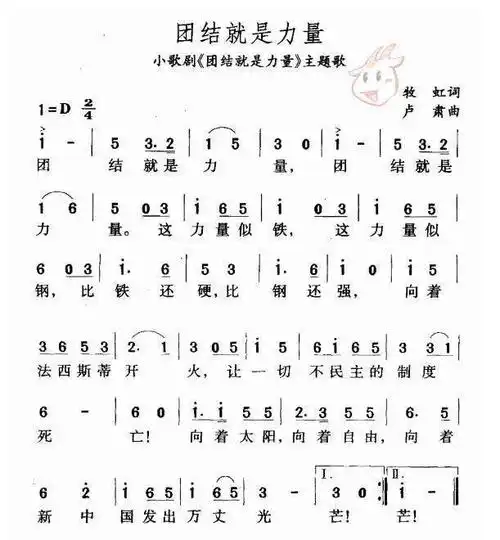 团结就是力量
小歌剧《团结就是力量》主题歌
1=D 2/4
牧 虹词
卢 肃曲
i - | 5 3·2 | 1 5 | 3 0 | i - | 5 3·2 |
团 结就是 力 量，团 结就是
1 6 | 5 0 3 | i 6 5 | 3 0 3 | i 6 5 |
力 量。这力量似铁，这力量似
6 0 3 | i· 6 | 5 3 | i· 6 | i 0 | i 6 5 |
钢，比铁还硬，比钢还强，向着
3 6 5 3 | 2· 1 | 3 0 5 | i 5 | 6 i 6 5 | 3 3 1 |
法西斯蒂开 火，让一切不民主的制度
6 - | 6 0 | 1· 1 5 | 2 5 | 2· 3 5 | 6· 5 |
死 亡！向着太阳，向着自由，向着
6 2 | i 6 5 | 1 6 5 | 3 - | I. 3 0 :| II. i - ||
新中国发出万丈光 芒！芒！